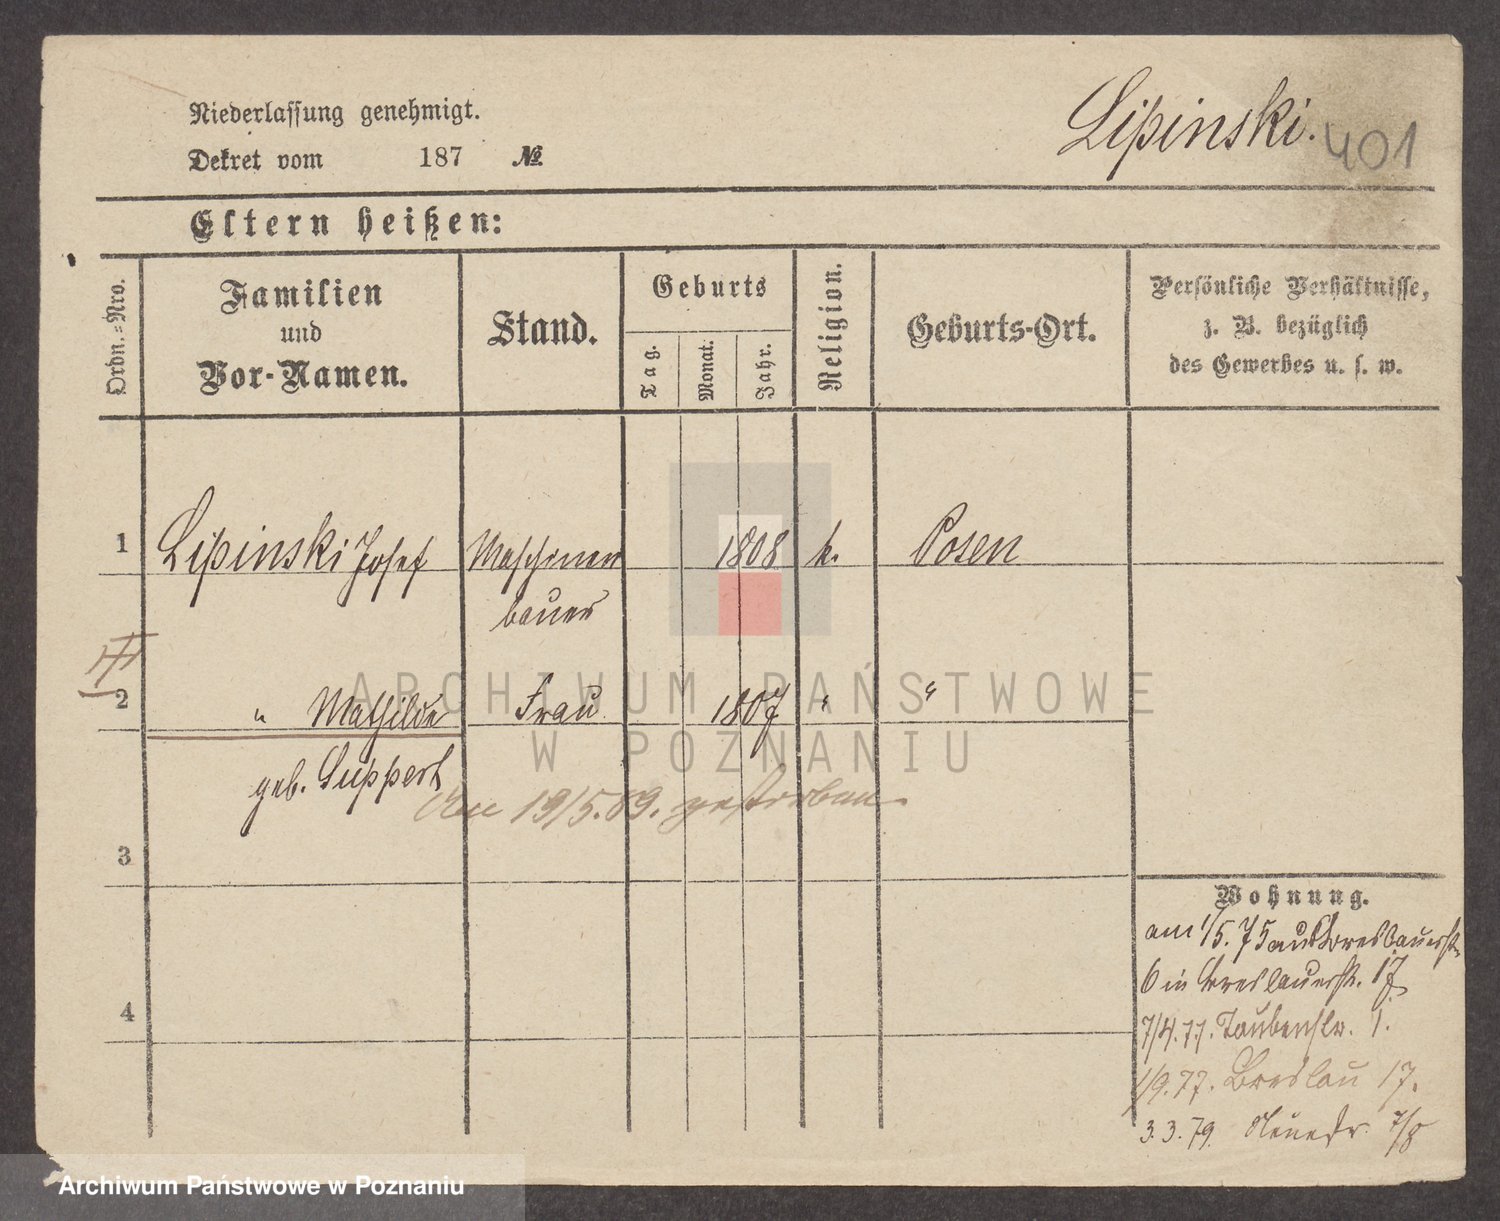 Niederlassung genehmigt.
Lipinski.
401
Dekret vom 187 №
Eltern heißen:
Ordn.=Nro.
Familien
und
Vor-Namen.
Stand.
Geburts
Tag.
Monat.
Jahr.
Religion.
Geburts-Ort.
Persönliche Verhältnisse,
z. B. bezüglich
des Gewerbes u. s. w.
1 Lipinski Josef Maschinen 1808 k. Posen
bauer
II
2 " Mathilde Frau 1807 " "
geb. Luppert
19/5.89. gestorben
3
Wohnung.
am 1/5.75 aus Breslauerstr.
6 in Breslauerstr. 17
4
7/4.77. Taubenstr. 1.
1/9.77. Breslau 17.
3.3.79. Neuestr. 7/8
ARCHIWUM PAŃSTWOWE
W POZNANIU
Archiwum Państwowe w Poznaniu